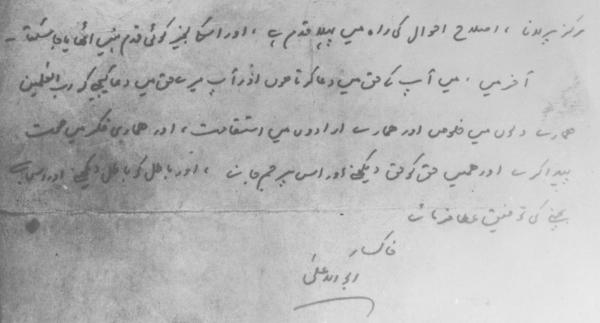 مرکز پر لانا، اصلاح احوال کی راہ میں پہلا قدم ہے، اور اسکے بغیر کوئی قدم نہیں اٹھایا جا سکتا۔
آخر میں، میں آپ کے حق میں دعا کرتا ہوں اور آپ میرے حق میں دعا کیجیے کہ رب العٰلمین
ہمارے دلوں میں خلوص اور ہمارے ارادوں میں استقامت، اور ہماری فکر میں صحت
پیدا کرے اور ہمیں حق کو حق دیکھنے اور اس پر جم جانے، اور باطل کو باطل دیکھنے اور اس سے
بچنے کی توفیق عطا فرمائے
خاکسار
ابو الاعلیٰ